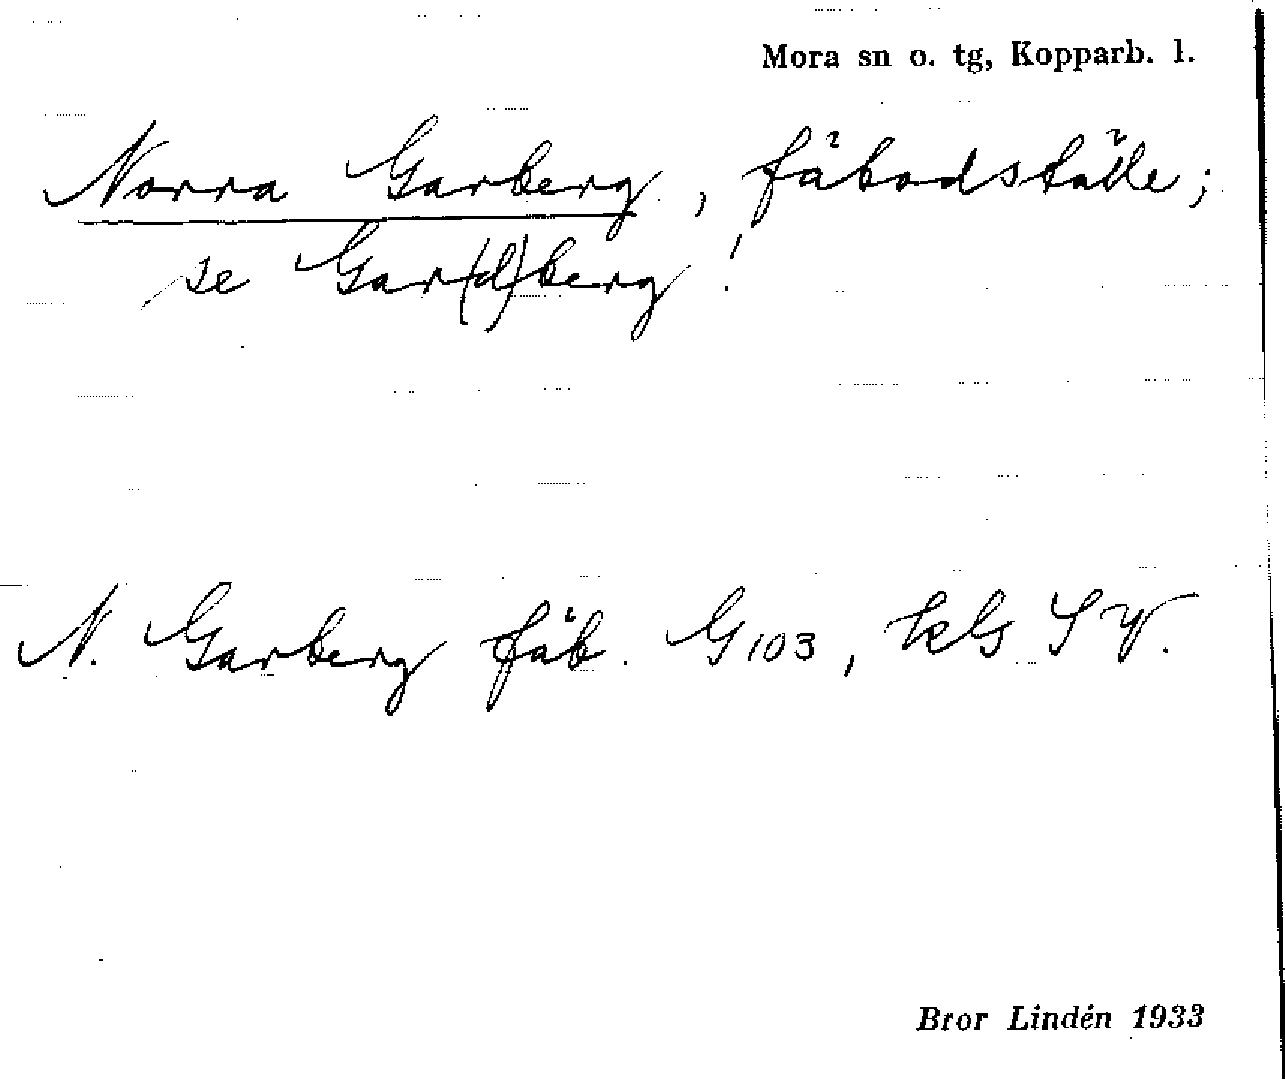 Mora sn o. tg, Kopparb. l.
Norra Garberg, fäbodställe;
se Gar(d)berg!
N. Garberg fäb. G103, kbG SV.
Bror Lindén 1933